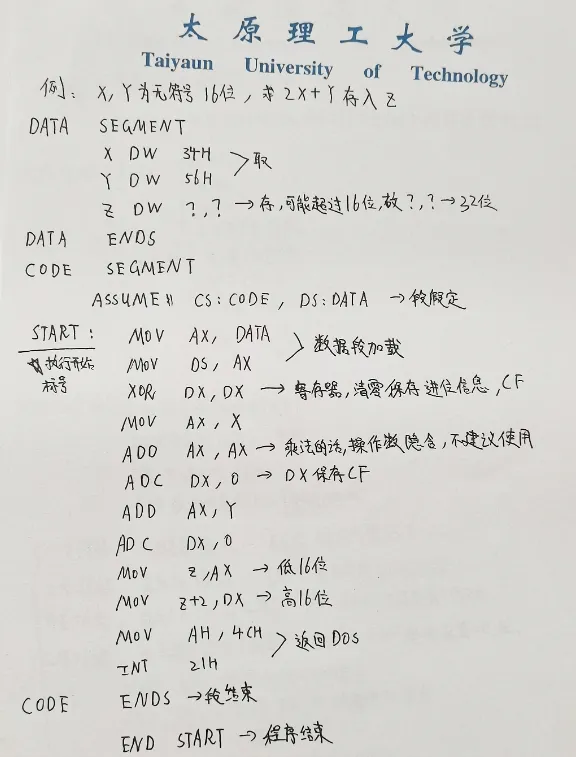 太原理工大学
Taiyaun University of Technology
例: X, Y为无符号16位, 求2X+Y存入Z
DATA SEGMENT
X DW 34H
Y DW 56H 取
Z DW ?,? → 存,可能超过16位,故?,? → 32位
DATA ENDS
CODE SEGMENT
ASSUME CS:CODE, DS:DATA → 段假定
START: MOV AX, DATA
执行开始标号 MOV DS, AX 数据段加载
XOR DX, DX → 寄存器,清零保存进位信息,CF
MOV AX, X
ADD AX, AX → 乘法的话,操作数隐含,不建议使用
ADC DX, 0 → DX保存CF
ADD AX, Y
ADC DX, 0
MOV Z, AX → 低16位
MOV Z+2, DX → 高16位
MOV AH, 4CH
INT 21H 返回DOS
CODE ENDS → 段结束
END START → 程序结束